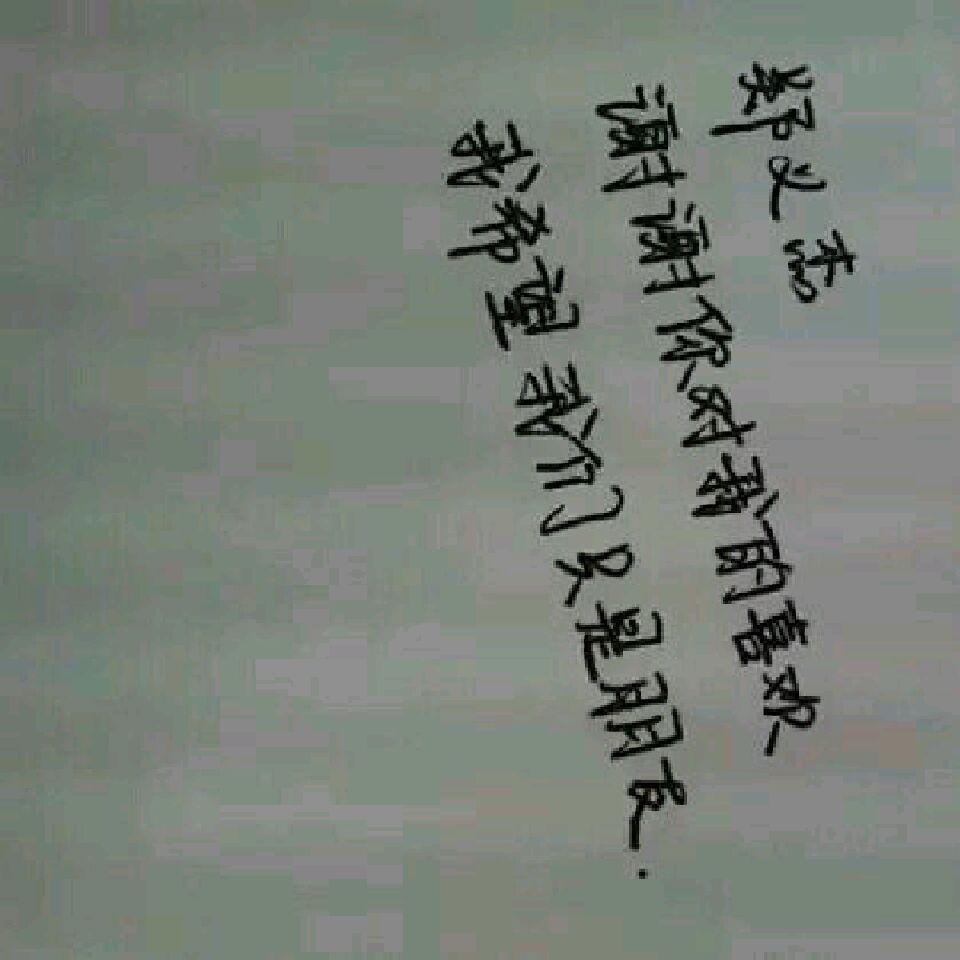 郑义杰
谢谢你对我的喜欢
我希望我们只是朋友.